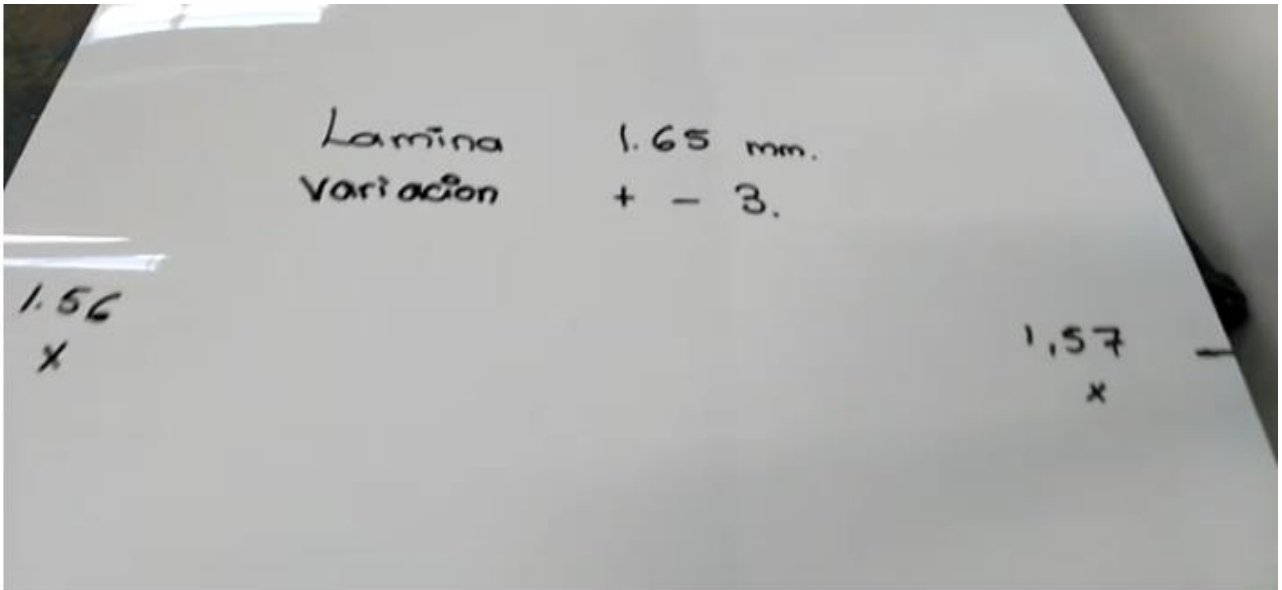 Lamina 1.65 mm.
Variacion + - 3.
1.56
x
1,57 -
x